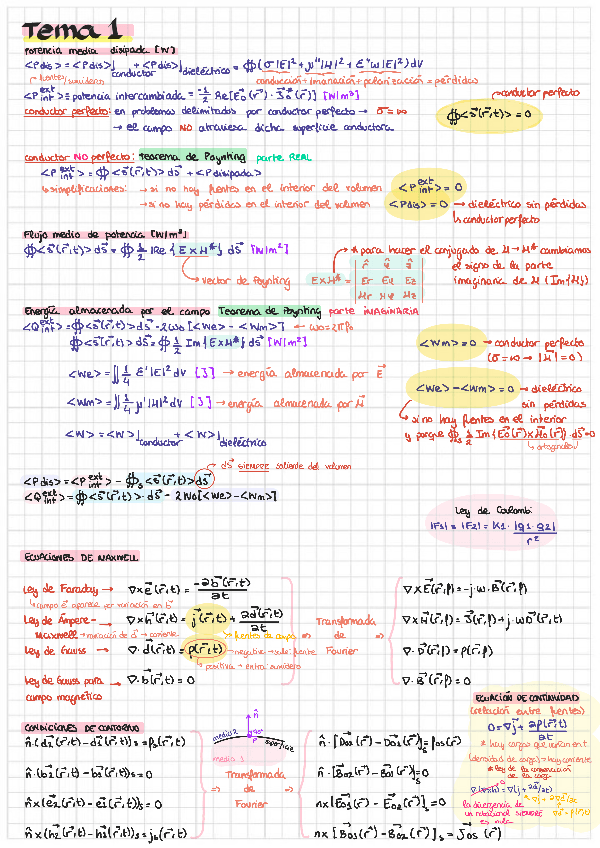 Tema 1
Potencia media disipada [W]
<Pdis> = <Pdis>]conductor + <Pdis>]dieléctrico = ∯(σ|E|² + μ''|H|² + ε''ω|E|²) dV
fuentes/sumideros
conducción + imanación + polarización = pérdidas
<P ext int> = potencia intercambiada = -1/2 Re[E₀(r)· J₀*(r)] [W/m³]
conductor perfecto: en problemas delimitados por conductor perfecto → σ = ∞
→ el campo NO atraviesa dicha superficie conductora
→ conductor perfecto
∯<s(r,t)> = 0
conductor NO perfecto: teorema de Poynting parte REAL
<P ext int> = ∯<s(r,t)> ds + <Pdisipada>
↳ simplificaciones: → si no hay fuentes en el interior del volumen
<P ext int> = 0
→ si no hay pérdidas en el interior del volumen
<Pdis> = 0 → dieléctrico sin pérdidas
↳ conductor perfecto
Flujo medio de potencia [W/m²]
∯<s(r,t)> ds = ∯ 1/2 Re {E×H*} ds [W/m²]
↳ vector de Poynting
E×H* = | r̂ φ̂ ẑ |
| Er Eφ Ez |
| Hr Hφ Hz |
* para hacer el conjugado de H → H* cambiamos
el signo de la parte
imaginaria de H (Im{H})
Energía almacenada por el campo Teorema de Poynting parte IMAGINARIA
<Q ext int> = ∯<s(r,t)> ds - 2ω₀ [<We> - <Wm>] ← ω₀ = 2πf₀
∯<s(r,t)> ds = ∯ 1/2 Im{E×H*} ds [W/m²]
<Wm> = 0 → conductor perfecto
(σ = ∞ → |H| = 0)
<We> = ∭ 1/4 ε'|E|² dV [J] → energía almacenada por E
<We> - <Wm> = 0 → dieléctrico
sin pérdidas
<Wm> = ∭ 1/4 μ'|H|² dV [J] → energía almacenada por H
↳ si no hay fuentes en el interior
y porque ∯s 1/2 Im{E₀(r)×H₀(r)}·ds = 0
ortogonales
<W> = <W>]conductor + <W>]dieléctrico
ds siempre saliente del volumen
<Pdis> = <P ext int> - ∯s<s(r,t)> ds
<Q ext int> = ∯<s(r,t)>· ds - 2ω₀[<We> - <Wm>]
Ley de Coulomb:
|F1| = |F2| = K1· |q1·q2| / r²
ECUACIONES DE MAXWELL
Ley de Faraday → ∇×e(r,t) = -∂b(r,t)/∂t
↳ campo e aparece por variación en b
Ley de Ampere-Maxwell → ∇×h(r,t) = j(r,t) + ∂d(r,t)/∂t
↳ variación de d → corriente
fuentes de campo
Ley de Gauss → ∇·d(r,t) = ρ(r,t)
→ negativa → sale: fuente
↳ positiva → entra: sumidero
Ley de Gauss para campo magnético → ∇·b(r,t) = 0
⇒ Transformada de Fourier ⇒
∇×E(r,f) = -j·ω·B(r,f)
∇×H(r,f) = J(r,f) + j·ωD(r,f)
∇·D(r,f) = ρ(r,f)
∇·B(r,f) = 0
ECUACIÓN DE CONTINUIDAD
(relación entre fuentes)
0 = ∇j + ∂ρ(r,t)/∂t
* hay cargas que varían en t
(densidad de carga) → hay corriente
* ley de la conservación de la carga
la divergencia de
un rotacional SIEMPRE
es nula
CONDICIONES DE CONTORNO
n̂
medio 2
90°
P
superficie
medio 1
n̂·(d₂(r,t) - d₁(r,t))s = ρs(r,t)
n̂·(b₂(r,t) - b₁(r,t))s = 0
n̂×(e₂(r,t) - e₁(r,t))s = 0
n̂×(h₂(r,t) - h₁(r,t))s = js(r,t)
⇒ Transformada de Fourier ⇒
n̂·[D₀₂(r) - D₀₁(r)]s = ρ₀s(r)
n̂·[B₀₂(r) - B₀₁(r)]s = 0
n×[E₀₁(r) - E₀₂(r)]s = 0
n×[B₀₁(r) - B₀₂(r)]s = J₀s(r)